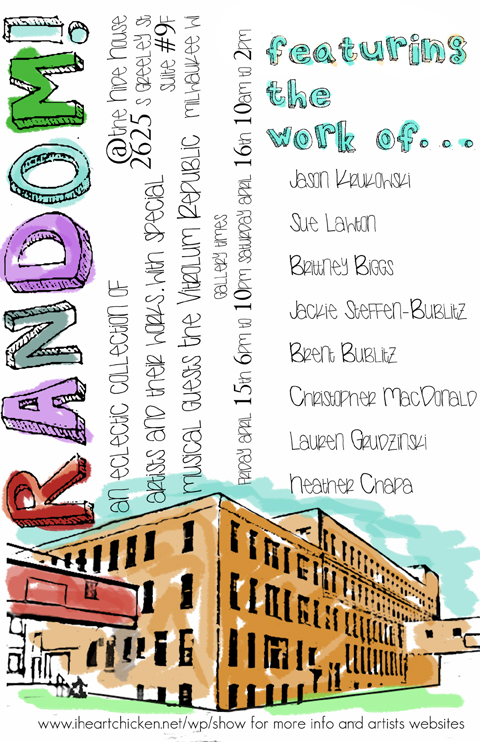 RANDOM!
an eclectic collection of
artists and their works with special
musical guests the Vitrolum Republic
@the Hide House
2625 S Greeley St
Suite #9F
Milwaukee WI
gallery times
Friday April 15th 6pm to 10pm Saturday April 16th 10am to 2pm
featuring
the
work of...
Jason Krukowski
Sue Lawton
Brittney Biggs
Jackie Steffen-Bublitz
Brent Bublitz
Christopher MacDonald
Lauren Grudzinski
Heather Chapa
www.iheartchicken.net/wp/show for more info and artists websites